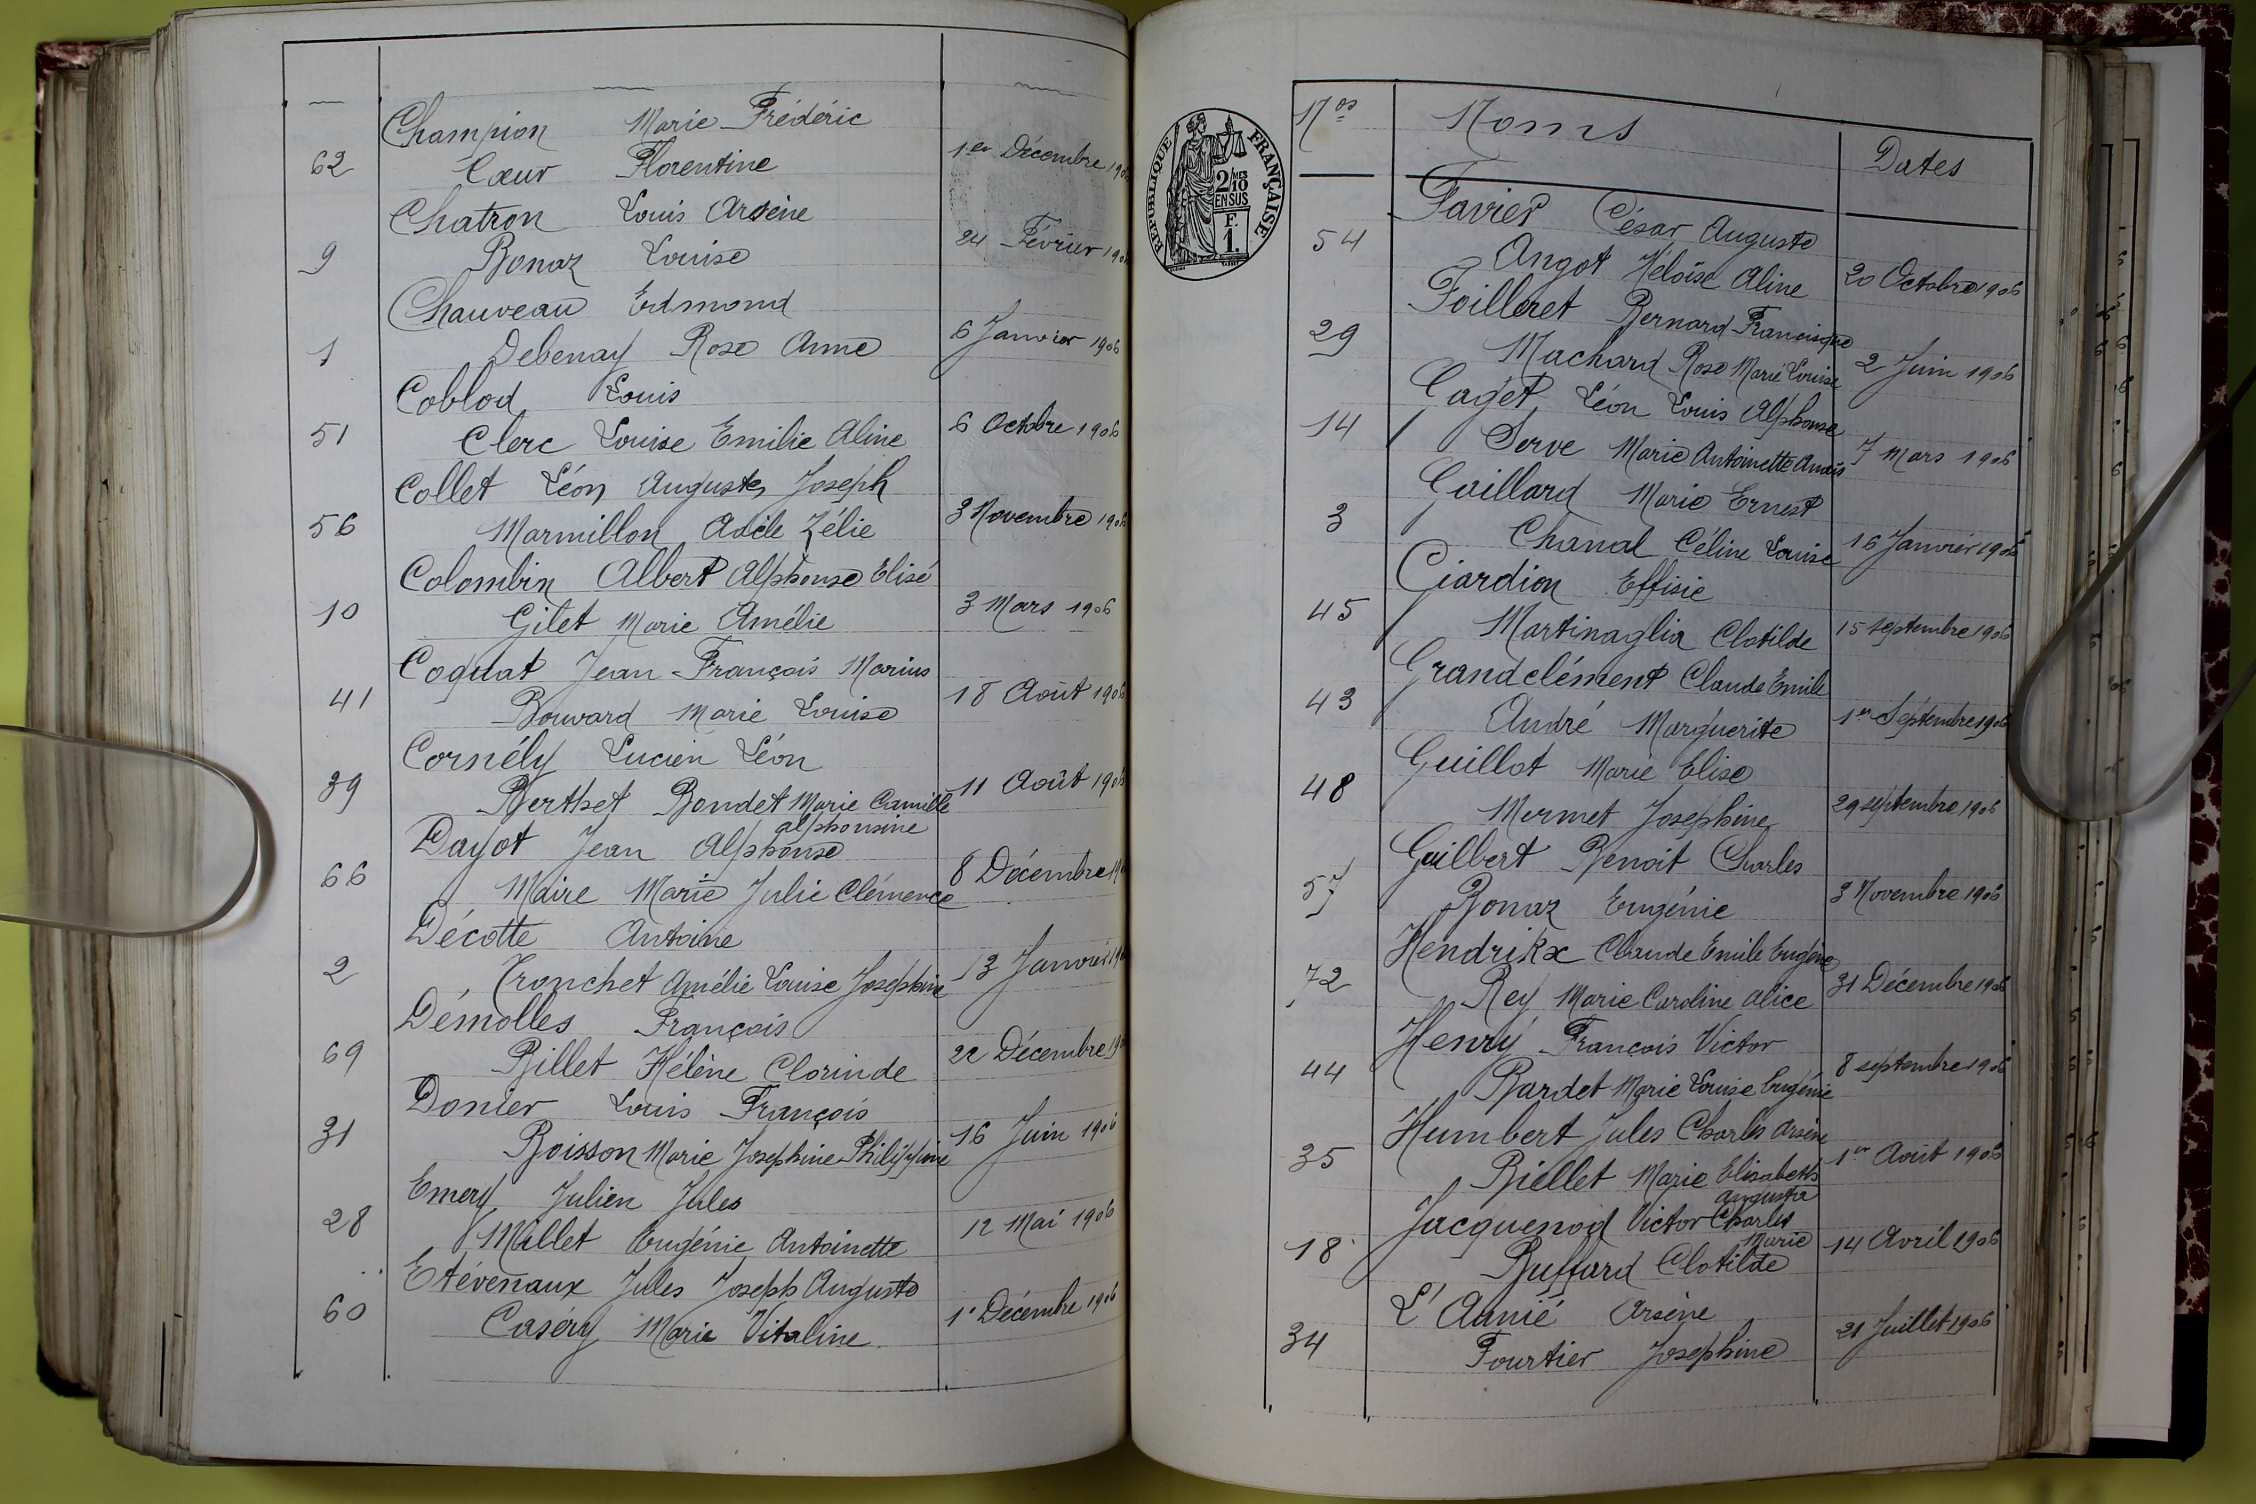 Champion Marie Frédéric
62 Cœur Florentine 1er Décembre 190
Chatron Louis Arsène
9 Bonaz Louise 24 Février 190
Chauveau Edmond
1 Debenay Rose Anne 6 Janvier 1906
Coblod Louis
51 Clerc Louise Emilie Aline 6 Octobre 1906
Collet Léon Auguste Joseph
56 Marmillon Adèle Zélie 3 Novembre 1906
Colombin Albert Alphonse Elisé
10 Gilet Marie Amélie 3 Mars 1906
Coquat Jean François Marius
41 Bouvard Marie Louise 18 Août 1906
Cornély Lucien Léon
39 Berthet Bondet Marie Camille 11 Août 1906
alphonsine
Dayot Jean Alphonse
66 Maire Marie Julie Clémence 8 Décembre 190
Décotte Antoine
2 Tronchet Amélie Louise Joséphine 13 Janvier 190
Démolles François
69 Billet Hélène Clorinde 22 Décembre 190
Donier Louis François
31 Boisson Marie Joséphine Philippine 16 Juin 1906
Emery Julien Jules
28 Millet Eugénie Antoinette 12 Mai 1906
Etévenaux Jules Joseph Auguste
60 Caséry Marie Vitaline 1r Décembre 1906
Nos Noms Dates
RÉPUBLIQUE FRANÇAISE
2/10MES
EN SUS
F.
1.
Favier César Auguste
54 Angot Héloïse Aline 20 Octobre 1906
Foilleret Bernard Francisque
29 Machard Rose Marie Louise 2 Juin 1906
Gaget Léon Louis Alphonse
14 Serve Marie Antoinette Anaïs 7 Mars 1906
Gaillard Marie Ernest
3 Chanal Céline Louise 16 Janvier 1906
Ciardion Effisie
45 Martinaglia Clotilde 15 septembre 1906
Grandclément Claude Emile
43 André Marguerite 1er Septembre 1906
Guillot Marie Elise
48 Mermet Joséphine 29 septembre 1906
Guilbert Benoit Charles
57 Bonaz Eugénie 3 Novembre 1906
Hendrikx Claude Emile Eugène
72 Rey Marie Caroline Alice 31 Décembre 1906
Henry François Victor
44 Bardet Marie Louise Eugénie 8 septembre 1906
Humbert Jules Charles Arsène
35 Biellet Marie Elisabeth 1er Août 1906
augusta
Jacquenod Victor Charles
Marie
18 Buffard Clotilde 14 Avril 1906
L'Aunié Arsène
34 Fourtier Joséphine 21 Juillet 1906